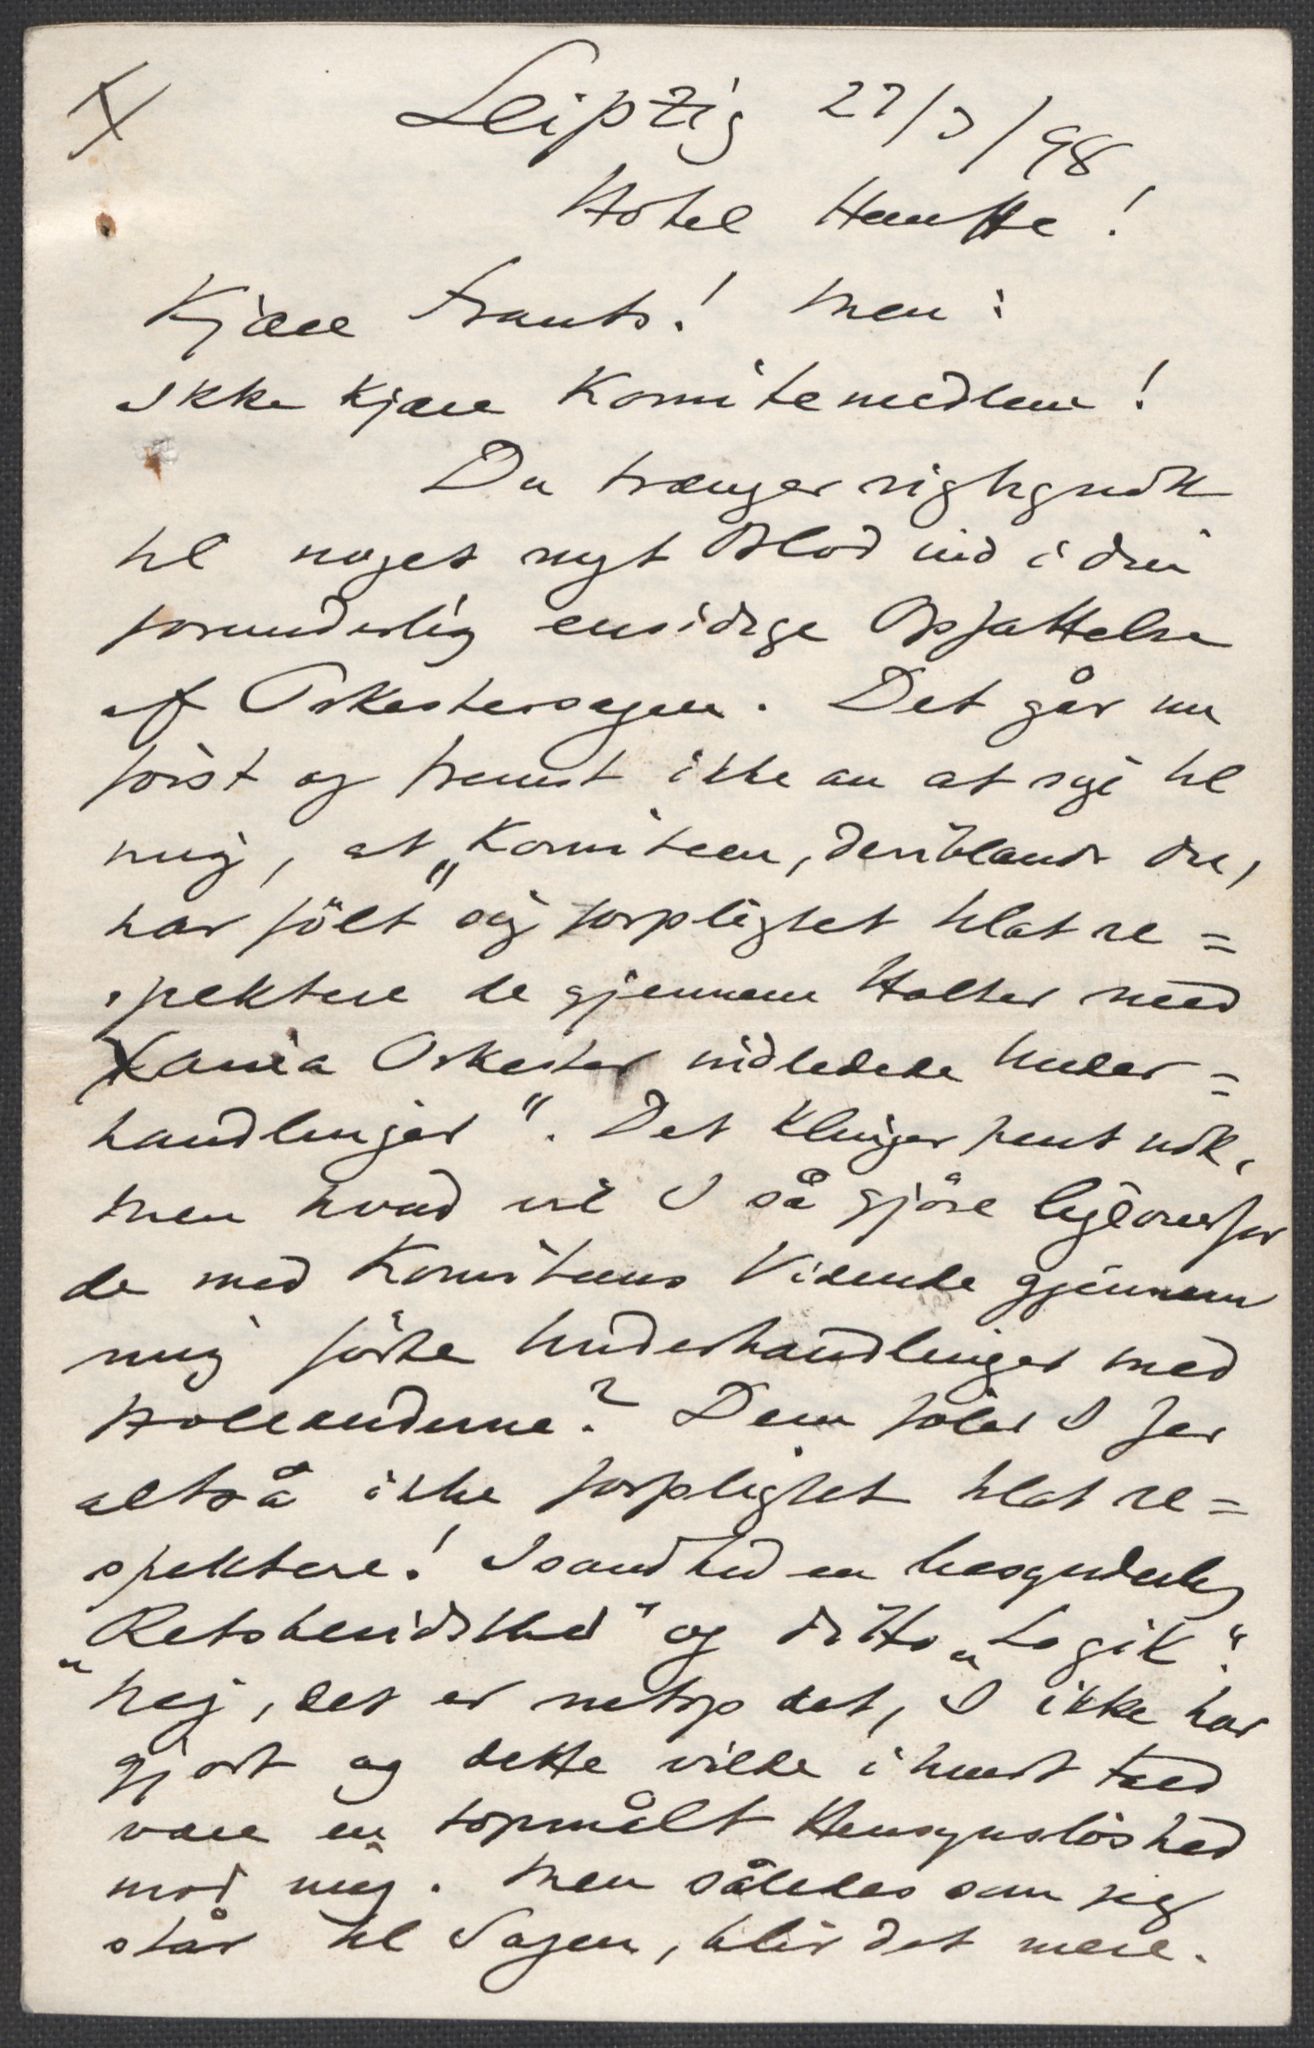 X
Leipzig 27/3/98
Hotel Hauffe!
Kjære Frants! Men:
ikke kjære Komitemedlem!
Du trænger rigtignok
til noget nyt Blod ind i din
forunderlig ensidige Opfattelse
af Orkestersagen. Det går nu
først og fremst ikke an at sige til
mig, at „Komiteen, deriblandt du,
har fölt sig forpligtet til at re=
spektere de gjennem Halter med
Xania Orkester indledede Under=
handlinger“. Det klinger pent nok,
men hvad vil I så gjöre ligeoverfor
de med Komiteens Vidende gjennem
mig förte Underhandlinger med
Hollænderne? Dem föler I Jer
altså ikke forpligtet til at re=
spektere! I sandhed en besynderlig
„Retsbevidsthed“ og ditto „Logik“.
Nej, det er netop det, I ikke har
gjort og dette vilde i hvert Fald
være en topmålt Hensynslöshed
mod mig. Men således som jeg
står til Sagen, blir det mere.